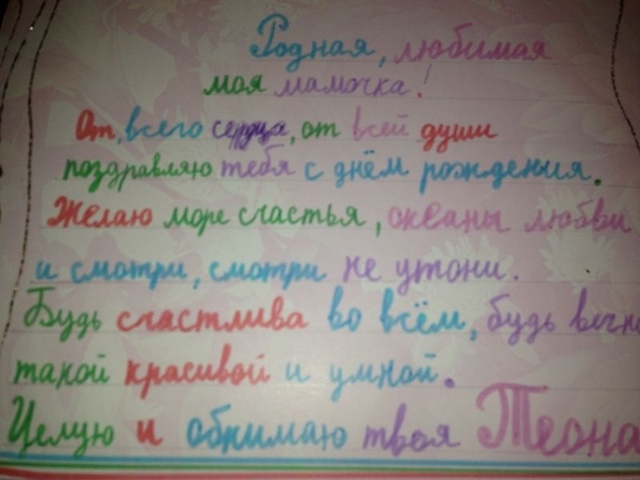 Родная, любимая
моя мамочка!
От всего сердца, от всей души
поздравляю тебя с днём рождения.
Желаю море счастья, океаны любви
и смотри, смотри не утони.
Будь счастлива во всём, будь вечно
такой красивой и умной.
Целую и обнимаю твоя Теона